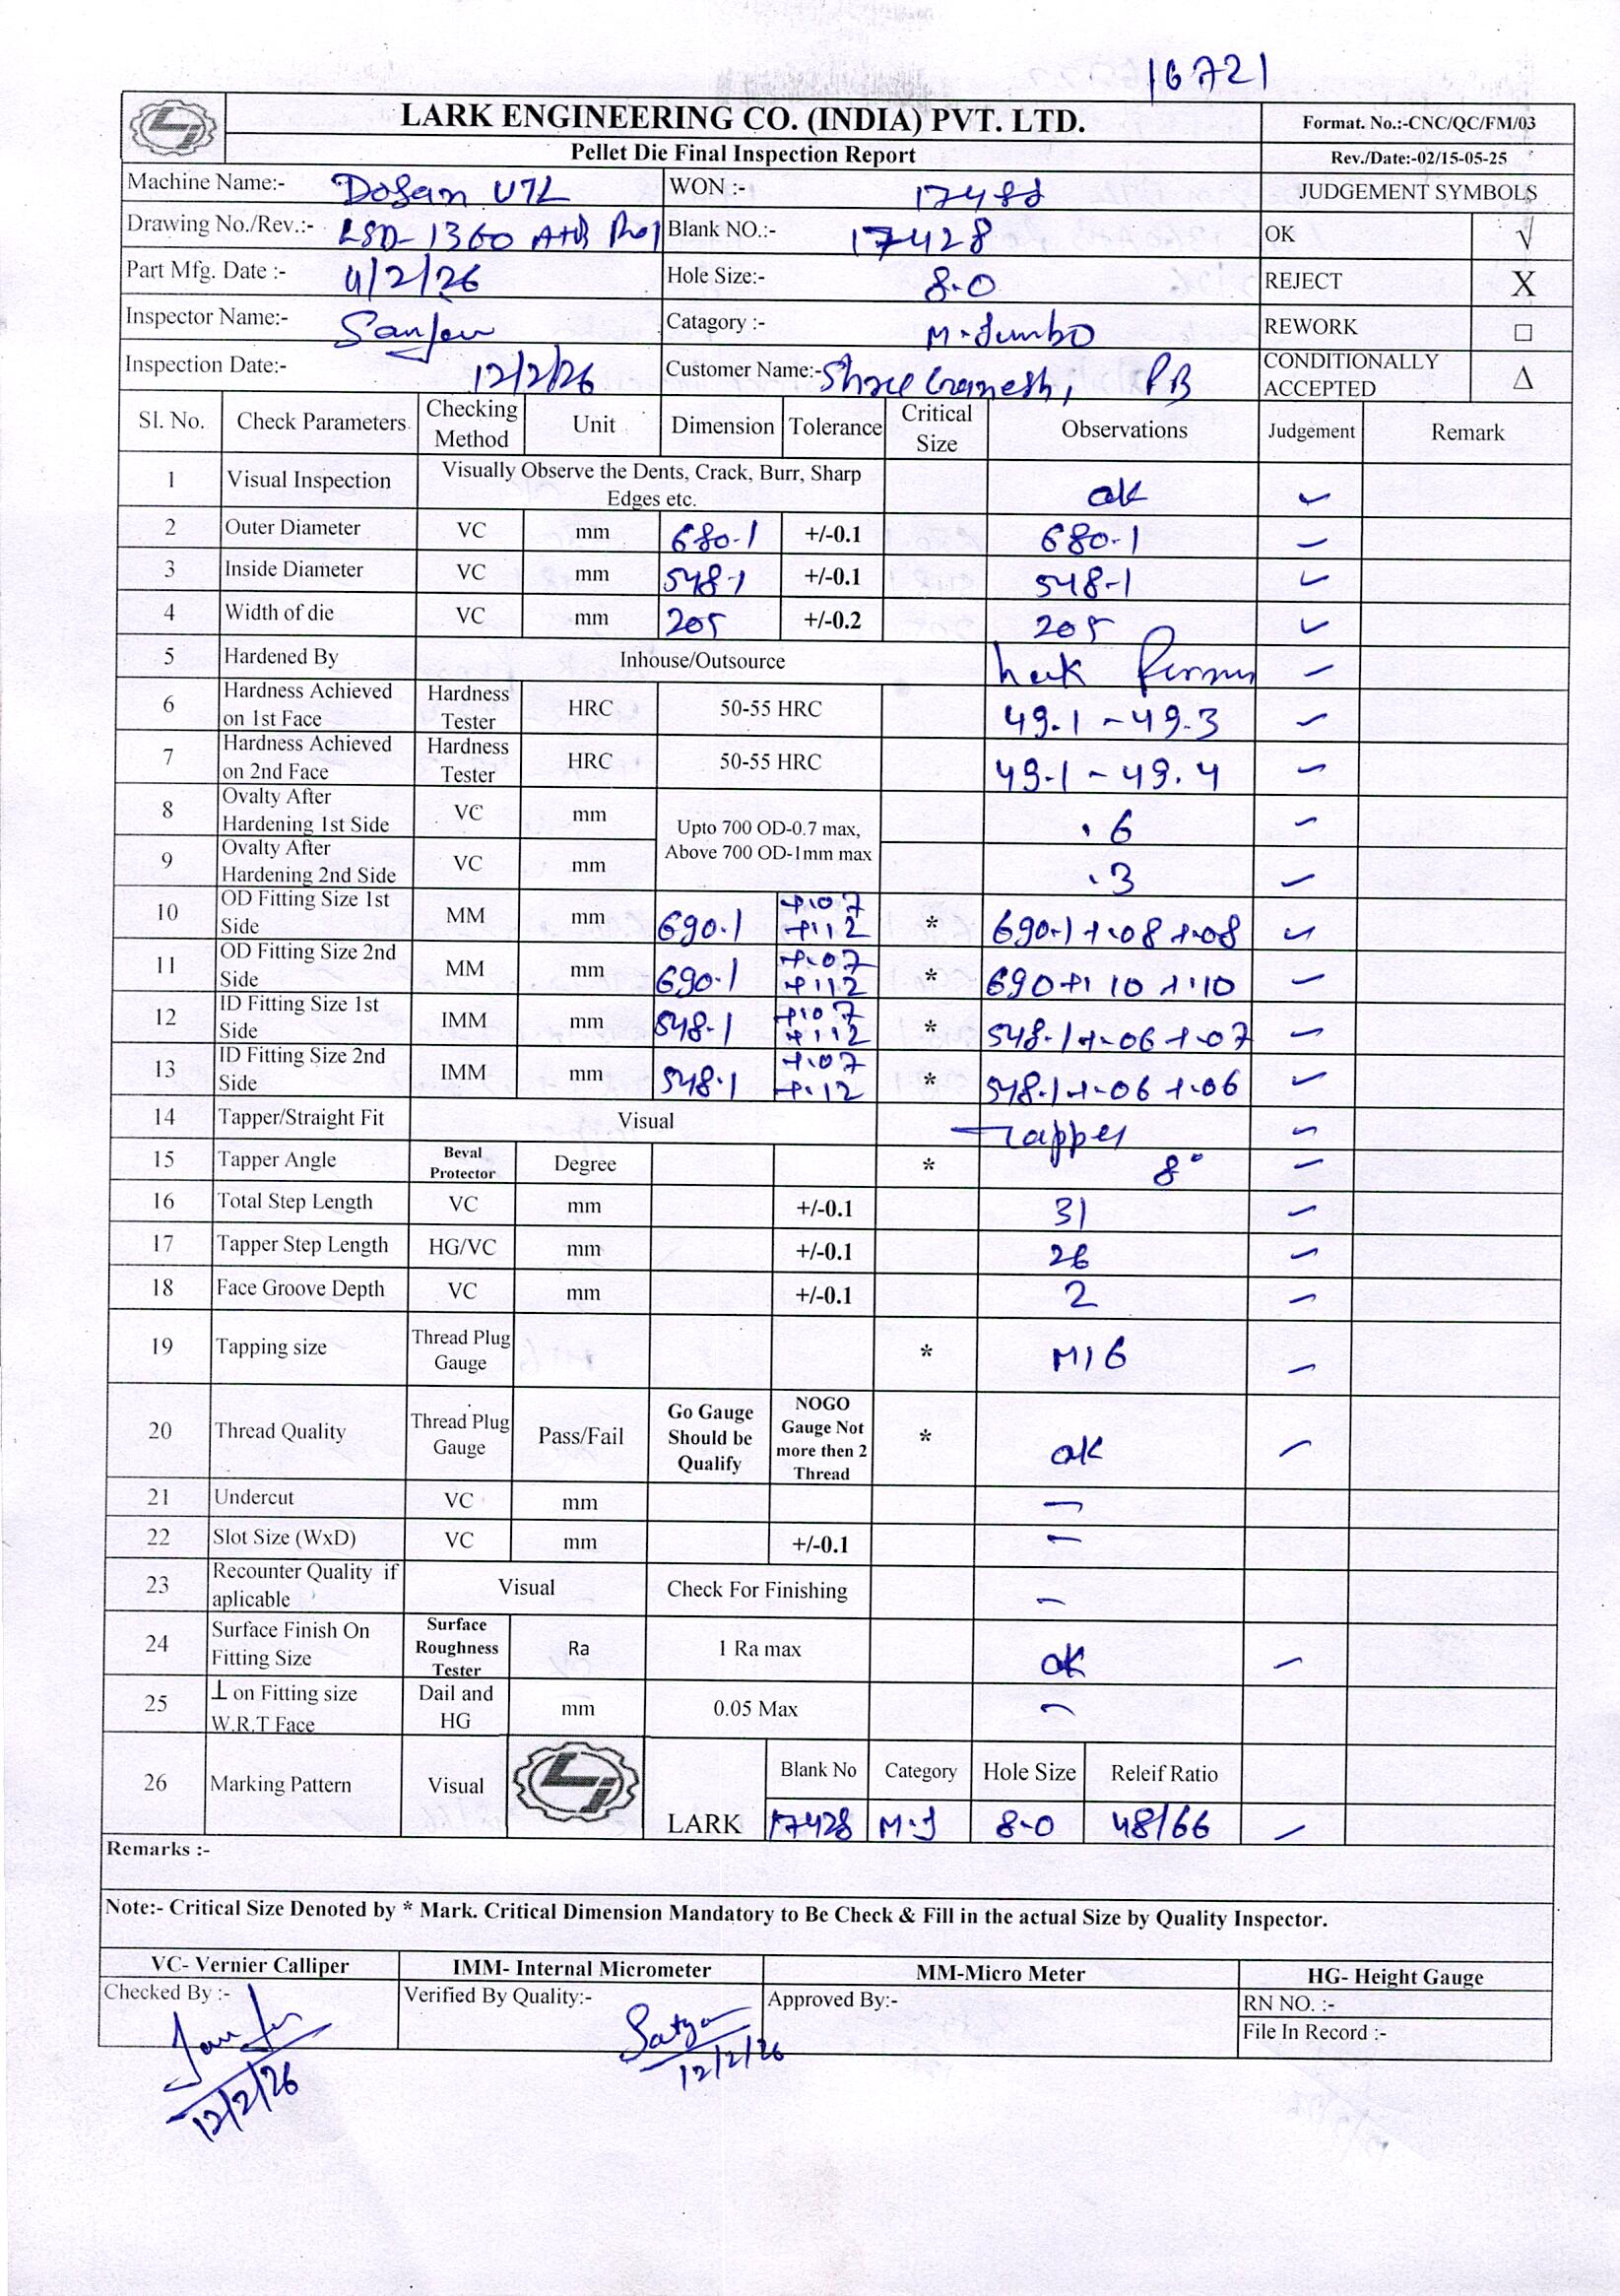 16721
LARK ENGINEERING CO. (INDIA) PVT. LTD.
Format. No.:-CNC/QC/FM/03
Pellet Die Final Inspection Report
Rev./Date:-02/15-05-25
Machine Name:- Dosan UTL WON :- 17488 JUDGEMENT SYMBOLS
Drawing No./Rev.:- LSD-1360 Blank NO.:- 17428 OK √
Part Mfg. Date :- 4/2/26 Hole Size:- 8.0 REJECT X
Inspector Name:- Sanjeev Catagory :- M-Jumbo REWORK □
Inspection Date:- 12/2/26 Customer Name:- Shree Ganesh, PB CONDITIONALLY ACCEPTED Δ
Sl. No. Check Parameters Checking Method Unit Dimension Tolerance Critical Size Observations Judgement Remark
1 Visual Inspection Visually Observe the Dents, Crack, Burr, Sharp Edges etc. ok ✓
2 Outer Diameter VC mm 680.1 +/-0.1 680.1 ✓
3 Inside Diameter VC mm 548.1 +/-0.1 548-1 ✓
4 Width of die VC mm 205 +/-0.2 205 ✓
5 Hardened By Inhouse/Outsource ✓
6 Hardness Achieved on 1st Face Hardness Tester HRC 50-55 HRC 49.1 - 49.3 ✓
7 Hardness Achieved on 2nd Face Hardness Tester HRC 50-55 HRC 49.1 - 49.4 ✓
8 Ovalty After Hardening 1st Side VC mm Upto 700 OD-0.7 max, Above 700 OD-1mm max .6 ✓
9 Ovalty After Hardening 2nd Side VC mm .3 ✓
10 OD Fitting Size 1st Side MM mm 690.1 +.07 +.12 * 690.1 +.08 +.08 ✓
11 OD Fitting Size 2nd Side MM mm 690.1 +.07 +.12 * 690 +.10 +.10 ✓
12 ID Fitting Size 1st Side IMM mm 548.1 +.07 +.12 * 548.1 +.06 +.07 ✓
13 ID Fitting Size 2nd Side IMM mm 548.1 +.07 +.12 * 548.1 +.06 +.06 ✓
14 Tapper/Straight Fit Visual Tapper ✓
15 Tapper Angle Beval Protector Degree * 8° ✓
16 Total Step Length VC mm +/-0.1 31 ✓
17 Tapper Step Length HG/VC mm +/-0.1 26 ✓
18 Face Groove Depth VC mm +/-0.1 2 ✓
19 Tapping size Thread Plug Gauge * M16 ✓
20 Thread Quality Thread Plug Gauge Pass/Fail Go Gauge Should be Qualify NOGO Gauge Not more then 2 Thread * ok ✓
21 Undercut VC mm -
22 Slot Size (WxD) VC mm +/-0.1 -
23 Recounter Quality if aplicable Visual Check For Finishing -
24 Surface Finish On Fitting Size Surface Roughness Tester Ra 1 Ra max ok ✓
25 ⊥ on Fitting size W.R.T Face Dail and HG mm 0.05 Max -
26 Marking Pattern Visual LARK Blank No Category Hole Size Releif Ratio
17428 M.J 8.0 48/66 ✓
Remarks :-
Note:- Critical Size Denoted by * Mark. Critical Dimension Mandatory to Be Check & Fill in the actual Size by Quality Inspector.
VC- Vernier Calliper IMM- Internal Micrometer MM-Micro Meter HG- Height Gauge
Checked By :- Verified By Quality:- Satya Approved By:- RN NO. :-
File In Record :-
12/2/26 12/2/26